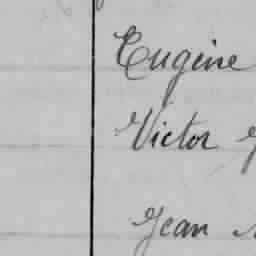 Eugène
Victor
Jean